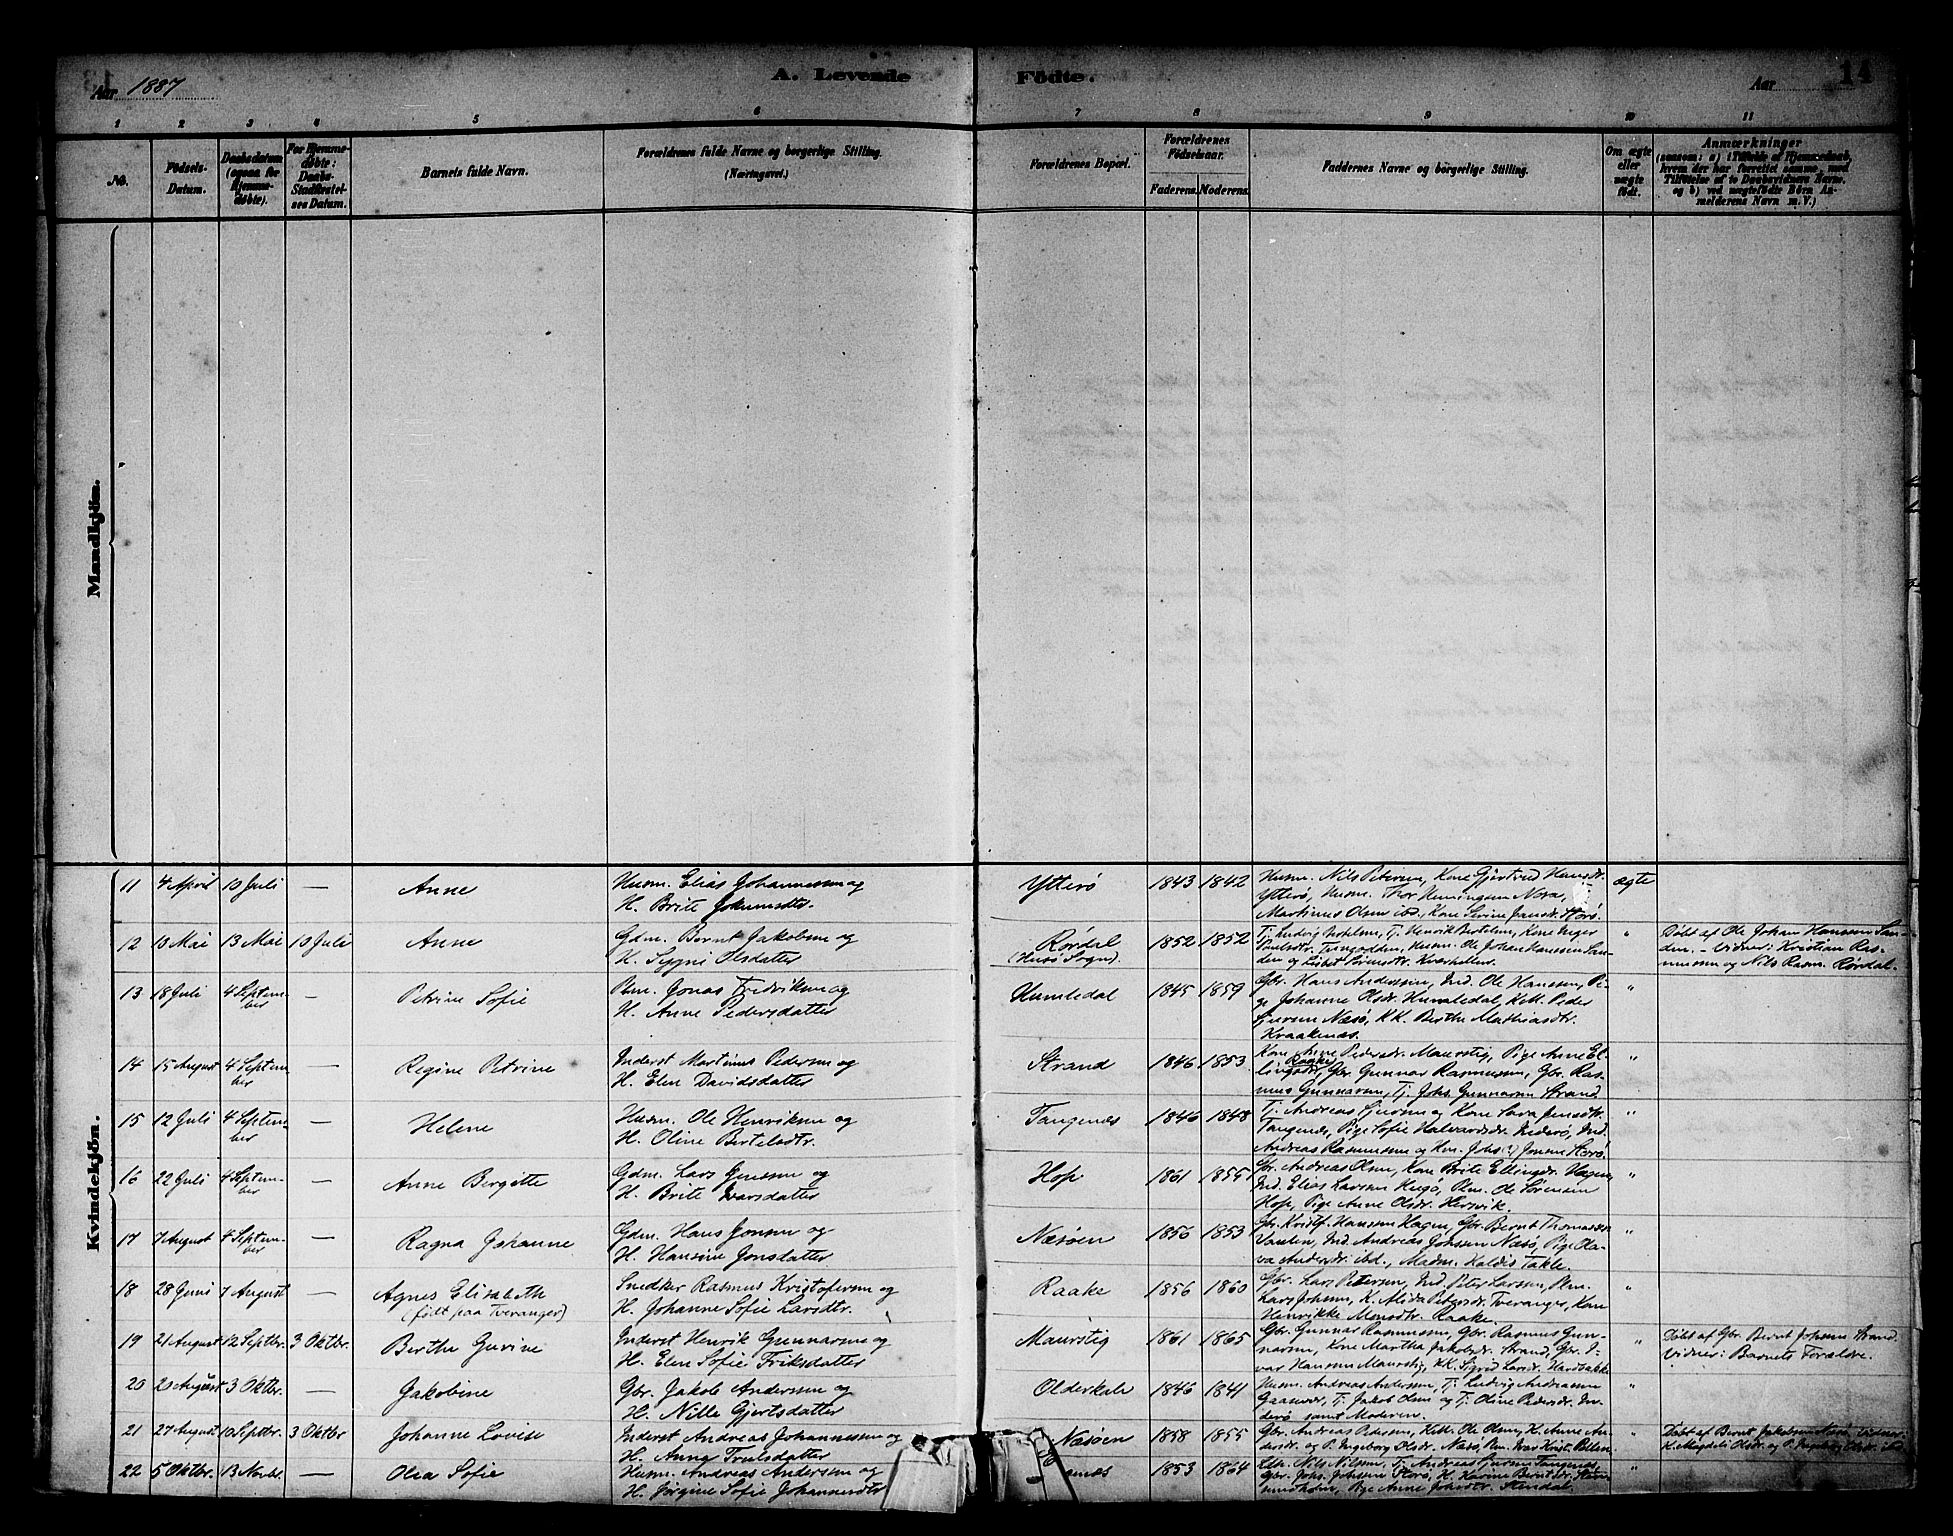 Aar 1887
A. Levende Födte.
Aar
14
1 2 3 4 5 6 7 8 9 10 11
No.
Födsels-Datum.
Daabsdatum (ogsaa for Hjemme-döbte).
For Hjemme-döbte: Daabs-Stadfæstel-ses Datum.
Barnets fulde Navn.
Forældrenes fulde Navne og borgerlige Stilling. (Næringsvei.)
Forældrenes Bopæl.
Forældrenes Födselsaar.
Faderens. Moderens.
Faddernes Navne og borgerlige Stilling.
Om ægte eller uægte födt.
Anmærkninger
(saasom: a) i Tilfælde af Hjemmedaab, hvem der har forrettet samme, med Tilföielse af to Daabsvidners Navne, og b) ved uægtefödte Börn Anmelderens Navn m. V.)
Mandkjön.
Kvindekjön.
11 4 April 10 Juli — Anne
Husm. Elias Johannessen og
H. Brite Johnsdtr.
Ytterö 1843 1842
Husm. Nils Petersen, Kone Gjertrud Hansdr.
Ytterö, Husm. Thor Henningsen Nora,
Martinus Olsen ibd., Kone Serine Jansdr. Storö.
ægte
12 10 Mai 13 Mai 10 Juli Anne
Gdm. Bernt Jakobsen og
H. Olsdatter
Rørdal
(Husö Sogn)
1852 1852
Tj. Ludvig Tj. Henrik Bertelsen, Kone
Paulsdtr. Tungodden, Husm. Ole Johan Hanssen San-
den og Lisbet Sörensdtr. Kverhellen.
"
Döbt af Ole Johan Hanssen San-
den. – Vidner: Kristian Ras-
mussen og Nils Rasm. Rørdal.
13 18 Juli 4 Septem-
ber — Petrine Sofie
Plm. Jonas Fredriksen og
H. Anne Pedersdatter
Humledal 1845 1859
Gbr. Hans Anderssen, Ind. Ole Hanssen, Pi-
ge Johanne Olsdr. Humledal, Peder
Sjursen Næsö, KK. Berthe Mathiasdtr.
Kraakenæs.
"
14 15 August 4 Septem-
ber — Regine Petrine
Inderst Martinus Pedersen og
H. Elen Davidsdatter
Strand 1846 1853
Kone Anne Pedersdr. Maurstig, Pige Anne El-
lingsdr. Raake, Gbr. Gunnar Rasmussen, Gbr. Ras-
mus Gunnarsen, Tj. Johs. Gunnarsen Strand
"
15 12 Juli 4 Septem-
ber — Helene
Husm. Ole Henriksen og
H. Oline Bertelsdtr.
Tangenæs 1846 1848
Tj. Andreas Sjursen og Kone Sara Jensdtr.
Tangenæs, Pige Sofie Halvardsdr. Inderö, Ind.
Andreas Rasmussen og Johs. Jonsen Storö.
"
16 22 Juli 4 Septem-
ber — Anne Bergitte
Gdm. Lars Jensen og
H. Brite Ivarsdatter
Hop 1861 1855
Gbr. Andreas Olsen, Kone Brite Ellingsdr. Hagen,
Ind. Elias Larsen Husö, Plm. Ole Sörensen
Hop, Pige Anne Olsdr. Hersvik.
"
17 7 August 4 Septem-
ber — Ragna Johanne
Gdm. Hans Jonsen og
H. Hansine Jonsdatter
Næsöen 1856 1853
Gbr. Kristof. Hanssen Hagen, Gbr. Bernt Thomassen
Vaulen, Ind. Andreas Johssen Næsö, Pige Ola-
va Andersdr. ibd., Madm. Kaldis Takle.
"
18 28 Juni 7 August — Agnes Elisabeth
(födt paa Tveranger)
Snedker Rasmus Kristofersen og
H. Johanne Sofie Larsdtr.
Raake 1856 1860
Gbr. Lars Petersen, Ind. Peter Larsen, Plm.
Lars Johssen, K. Alida Petersdr. Tveranger, Kone
Henrikke Monsdtr. Raake.
"
19 21 August 12 Septbr. 3 Oktbr. Berthe Gurine
Inderst Henrik Gunnarsen og
H. Elen Sofie Eriksdatter
Maurstig 1861 1865
Gbr. Gunnar Rasmussen, Gbr. Rasmus Gun-
narsen, Kone Martha Jakobsdr. Strand, Gbr. I-
var Hanssen Maurstig, KK. Sigrid Larsdr. Hardbakke
"
Döbt af Gbr. Bernt Johssen Strand.
Vidner: Barnets Forældre.
20 20 August 3 Oktbr. — Jakobine
Gbr. Jakob Andersen og
H. Nille Gjertsdatter
Olderkale 1846 1841
Husm. Andreas Andersen, Tj. Ludvig Andreassen
Gaasvær, Tj. Jakob Olsen og Tj. Oline Pedersdr. In-
derö samt Moderen.
"
21 27 August 10 Septbr. 3 Oktbr Johanne Lovise
Inderst Andreas Johannessen og
H. Anne Trulsdatter
Næsöen 1858 1855
Gbr. Andreas Pedersen, Ole Olsen, K. Anne An-
dersdr. og P. Ingeborg Olsdr. Næsö, Plm. Ivar Krist.
"
Döbt af Bernt Jakobsen Næsö, Vidner:
K. Magdeli Olsdr. og P. Ingeborg Olsdr. ibd.
22 5 Oktbr. 13 Novbr. — Olea Sofie
Husm. Andreas Andersen og
H. Jörgine Sofie Johannesdtr
1853 1864
Nils Nilssen, Tj. Andreas Sjursen Tangenæs,
Gbr. Johs. Johssen Storö, H. Karine Berntsdr.
Pige Anne Johsdtr. Steindal.
"